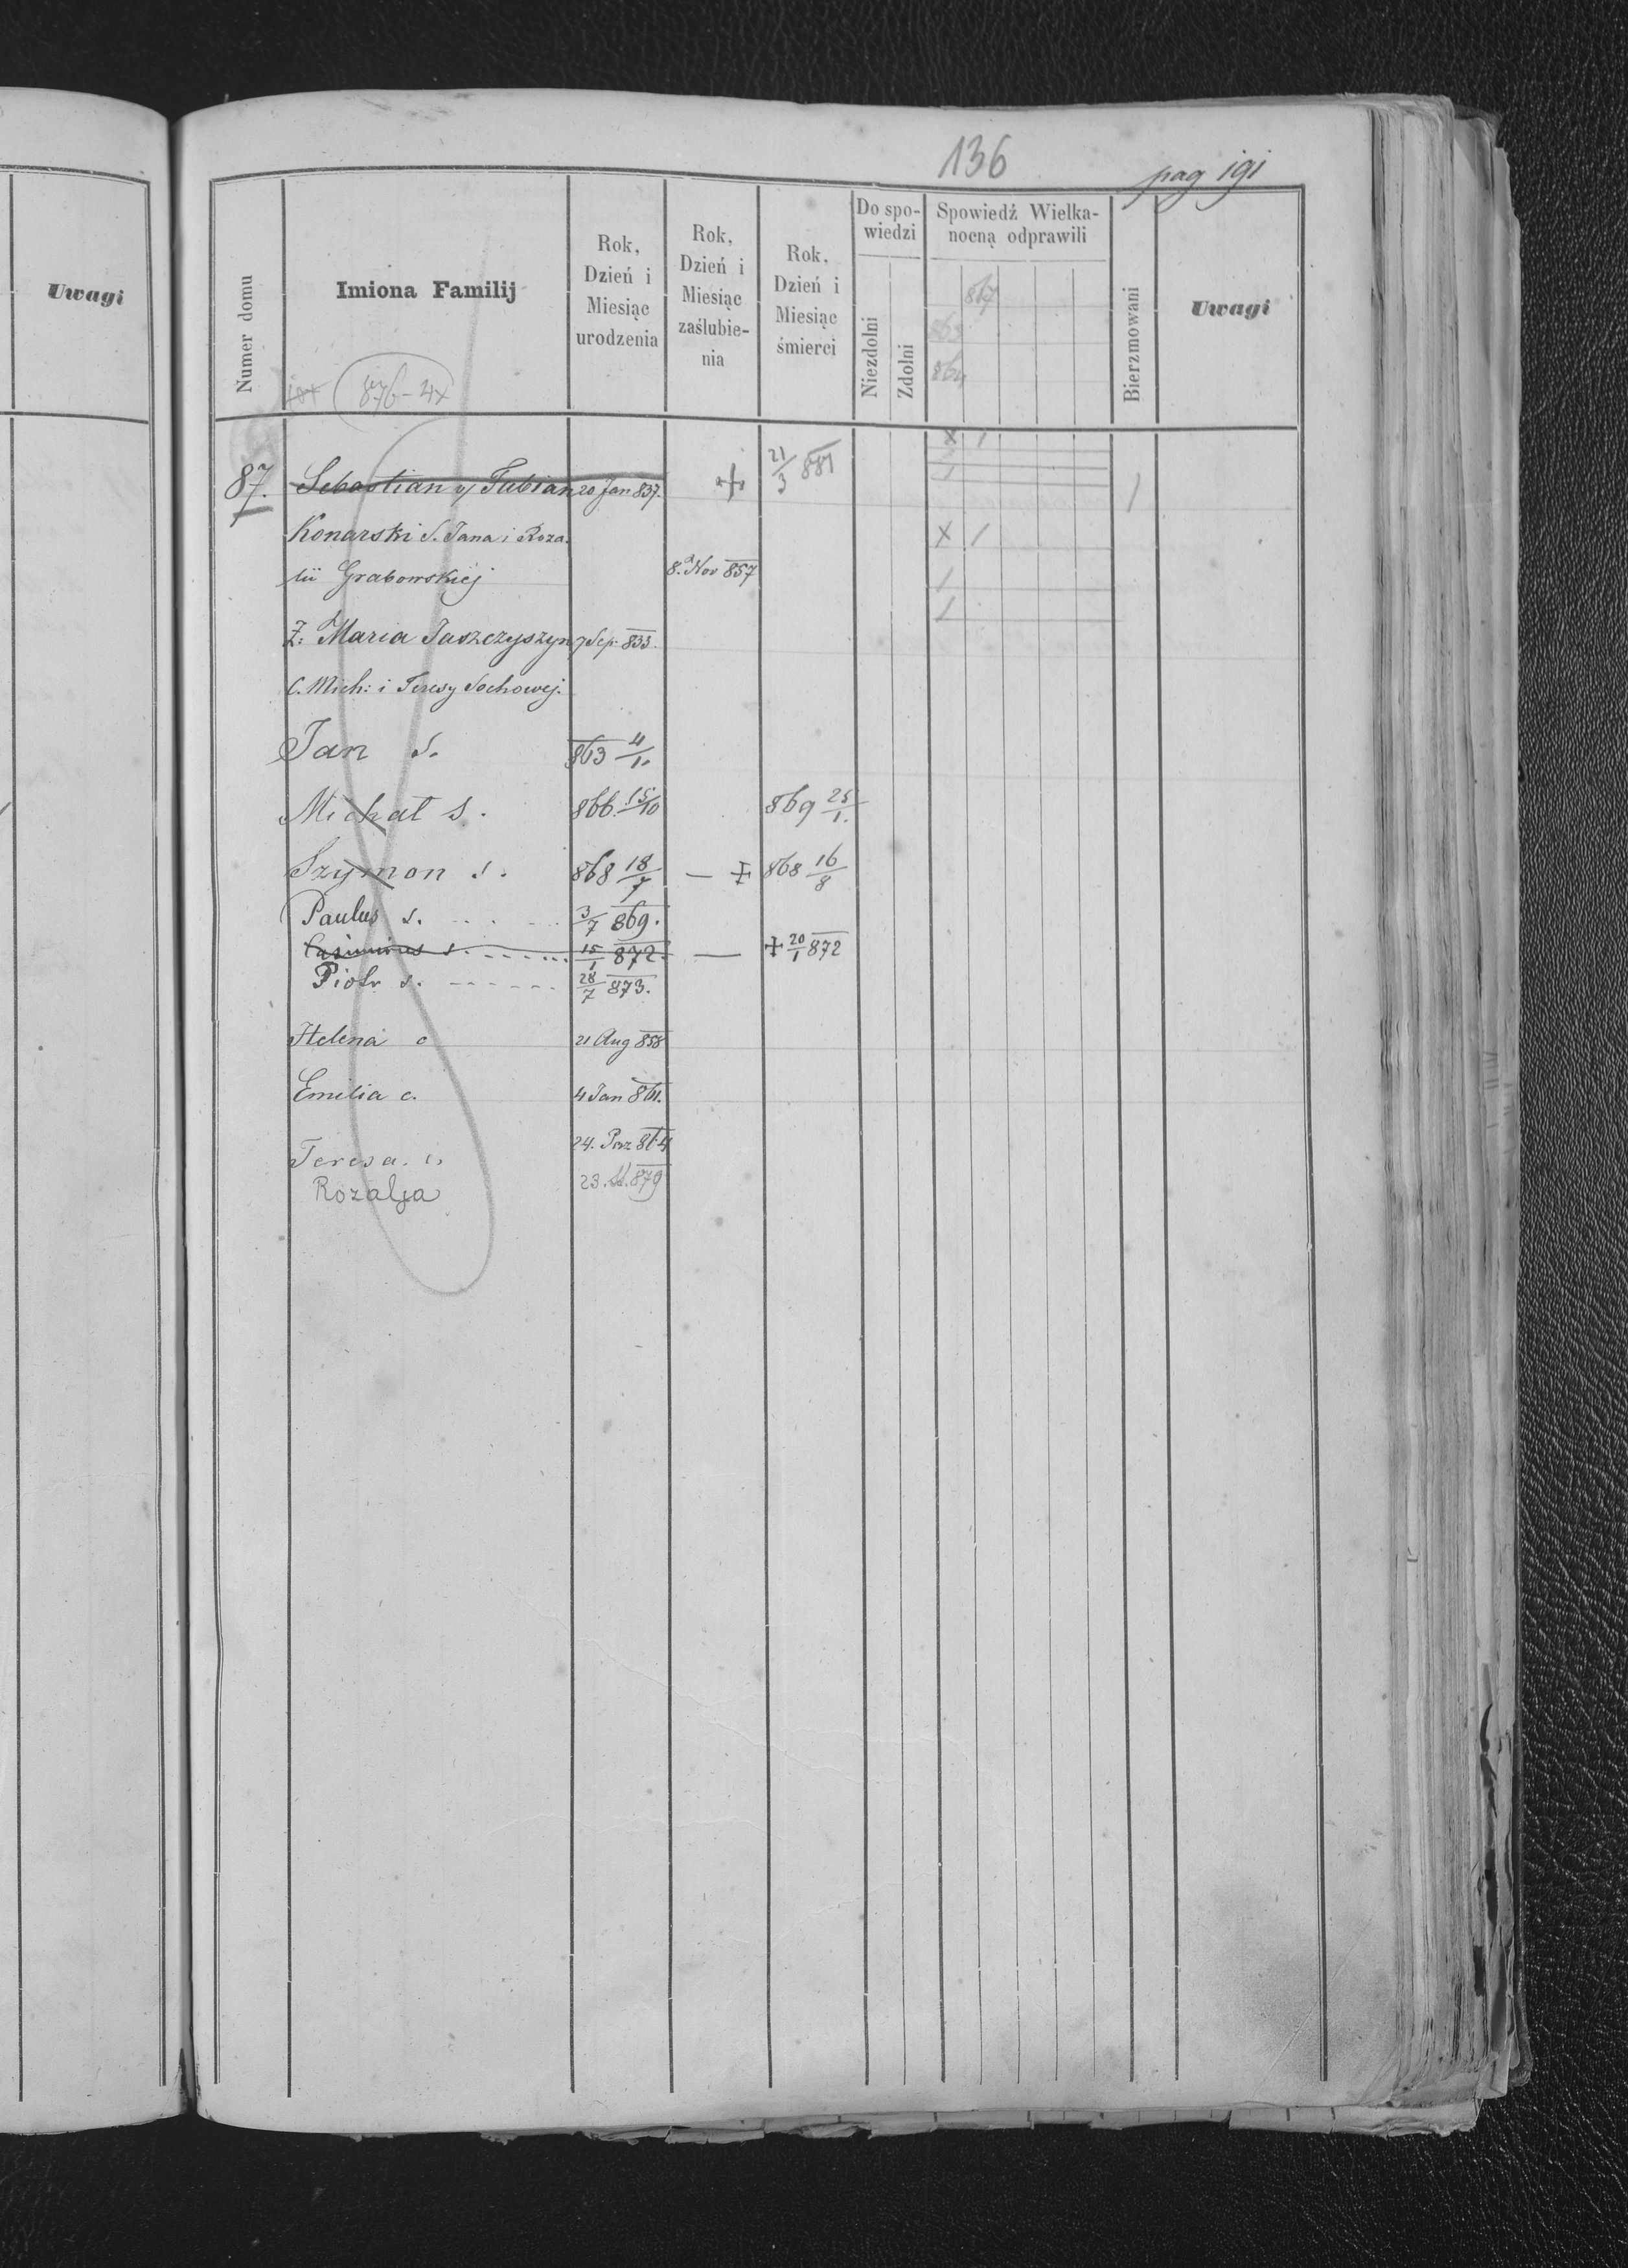 Uwagi
136
pag 191
Numer domu
Imiona Familij
Rok, Dzień i Miesiąc urodzenia
Rok, Dzień i Miesiąc zaślubie-nia
Rok, Dzień i Miesiąc śmierci
Do spo-wiedzi
Niezdolni
Zdolni
Spowiedź Wielka-nocną odprawili
Bierzmowani
Uwagi
867
863
864
876-4x
87. Sebastian y Fabian 20 Jan 837. + 21/3 881
Konarski S. Jana i Roza-
lii Grabowskiej 8. Nov 857
Ż: Maria Jaszczyszyn 7 Sep 833.
C. Mich: i Teresy Sochowej.
Jan S. 863 4/1.
Michał S. 866. 15/10 869 25/1.
Szymon S. 868 18/7 — + 868 16/8
Paulus S. 3/7 869.
Casimirus S. 15/1 872. — + 20/1 872
Piotr S. 28/7 873.
Helena c 21 Aug 858
Emilia c. 4 Jan 861.
Teresa. c. 24. Paz 864
Rozalja 23.11.879